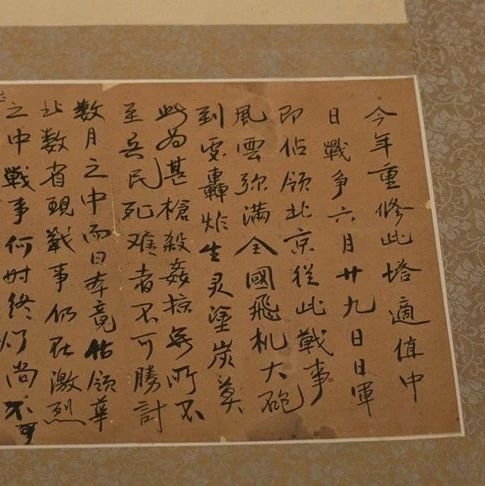 今年重修此塔適值中
日戰爭六月廿九日日軍
即佔領北京從此戰事
風雲弥满全國飛机大砲
到處轟炸生灵塗炭莫
此为甚槍殺姦掠無所不
至兵民死难者不可勝計
数月之中而日本竟佔領華
北数省現戰事仍在激烈
之中戰事何时终了尚不可